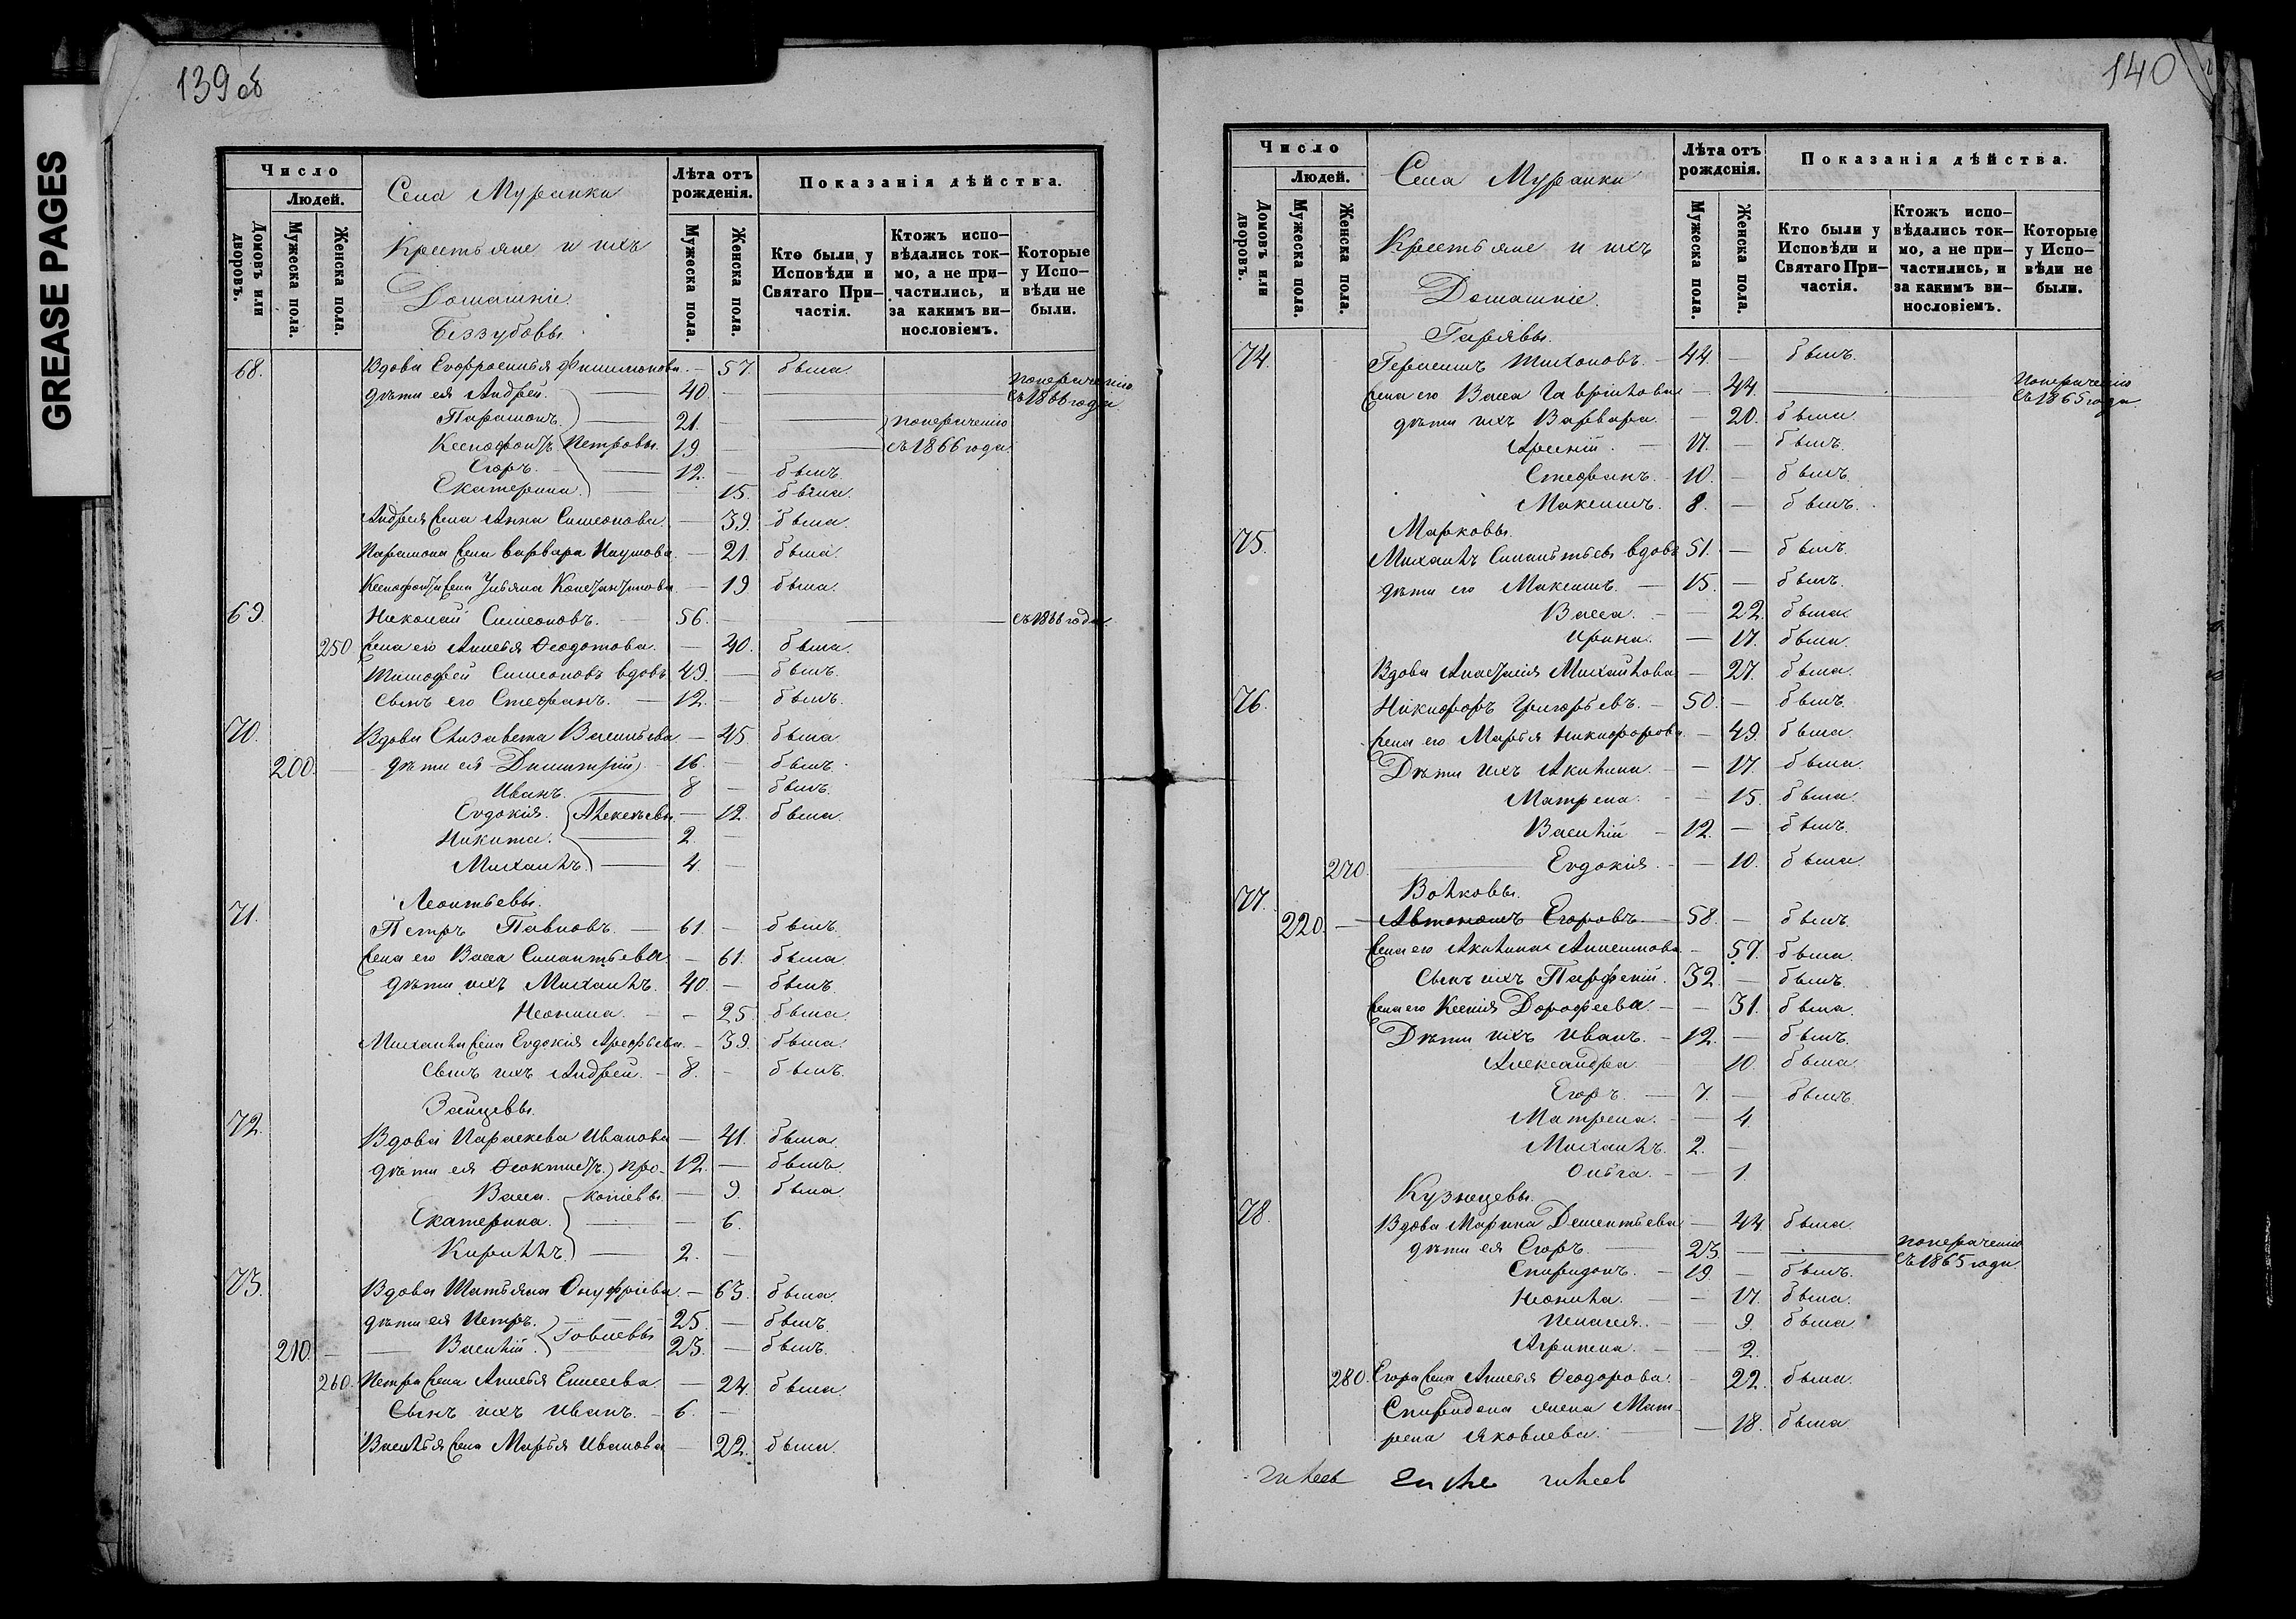 GREASE PAGES
139 об
Число
Людей.
Домовъ или дворовъ.
Мужеска пола.
Женска пола.
Села Муранки
Крестьяне и ихъ
Домашніе
Беззубовы.
Лѣта отъ рожденія.
Мужеска пола.
Женска пола.
Показанія дѣйства.
Кто были у Исповѣди и Святаго Причастія.
Ктожъ исповѣдались токмо, а не причастились, и за какимъ винословіемъ.
Которые у Исповѣди не были.
68. Вдова Евфросинья Филимонова. — 57. была.
дѣти ея Андрей. 40. — по нераченію съ 1866 года
Парамонъ. 21. — по нераченію
Ксенофонтъ Петровы. 19 — съ 1866 года
Егоръ. 12. — былъ.
Екатерина. — 15. была.
Андрея жена Анна Симеонова. — 39. была.
Парамона жена Варвара Наумова. — 21. была.
Ксенофонта жена Ульяна Константинова — 19 была.
69. Николай Симеоновъ. — 56. — съ 1866 года.
250 жена его Анисья Ѳеодотова. — 40. была.
Тимофей Симеоновъ вдовъ 49. — былъ.
Сынъ его Стефанъ. — 12. — былъ.
70. Вдова Елизавета Васильева — 45. была
200. дѣти ея Димитрій — 16. — былъ.
Иванъ. 8 — былъ.
Евдокія. Алексѣевы. — 12. была.
Никита. 2. —
Михаилъ. 4. —
Леонтьевы.
71. Петръ Павловъ. — 61. — былъ.
жена его Васса Силантьева. — 61. была.
дѣти ихъ Михаилъ. 40. — былъ.
Неонила. — 25. была.
Михаила жена Евдокія Арефьева. — 39. была.
Сынъ ихъ Андрей. — 8. — былъ.
Зайцевы.
72. Вдова Параскева Иванова — 41. была.
дѣти ея Ѳеоктистъ. Про- 12. — былъ.
Васса. копіевы. — 9. была.
Екатерина. — 6.
Кириллъ. — 2. —
73. Вдова Татьяна Онуфріева. — 63. была.
дѣти ея Петръ. 25. — былъ.
210. — Василій. Іовлевы 23. — былъ.
260. Петра жена Анисья Елисеева. — 24. была.
Сынъ ихъ Иванъ. — 6. —
Василья жена Марья Иванова — 22. была.
140
Число
Людей.
Домовъ или дворовъ.
Мужеска пола.
Женска пола.
Села Муранки
Крестьяне и ихъ
Домашніе.
Лѣта отъ рожденія.
Мужеска пола.
Женска пола.
Показанія дѣйства.
Кто были у Исповѣди и Святаго Причастія.
Ктожъ исповѣдались токмо, а не причастились, и за какимъ винословіемъ.
Которые у Исповѣди не были.
74. Тихоновъ. — 44. — былъ.
жена его Васса Гаврилова — 44. — по нераченію съ 1865 года.
дѣти ихъ Варвара. — 20. была.
Арсеній. — 17. — былъ.
Стефанъ. — 10. — былъ.
Максимъ. 8. — былъ.
Марковы.
75. Михаилъ Силантьевъ вдовъ 51. — былъ.
дѣти его Максимъ. — 15. — былъ.
Васса. — 22. была
Ирина. — 17. была.
Вдова Анастасія Михайлова — 27. была.
76. Никифоръ Григорьевъ. — 50. — былъ.
жена его Марья Никифорова — 49. была.
Дѣти ихъ Акилина. — 17. была.
Матрена. — 15. была.
Василій — 12. — былъ.
270. Евдокія. — 10. была.
Волковы.
77. 220. — Автономъ Егоровъ. — 58. — былъ.
жена его Акилина — 57. была.
Сынъ ихъ Парфеній. 32. — былъ.
жена его Ксенія Дорофеева. — 31. была.
Дѣти ихъ Иванъ. — 12. — былъ.
Александра. — 10. была.
Егоръ. — 7. — былъ.
Матрена. — 4.
Михаилъ. 2. —
Ольга. — 1.
Кузнецевы.
78. Вдова Марина Дементьева — 44. была.
дѣти ея Егоръ. — 23. — по нераченію съ 1865 года.
Спиридонъ. — 19. — былъ.
Неонила. — 17. была.
Пелагея. — 9. была.
Агрипена. — 2.
280. Егора жена Анисья Ѳеодорова. — 22. была.
Спиридона жена Мат-
рена Яковлева. — 18. была